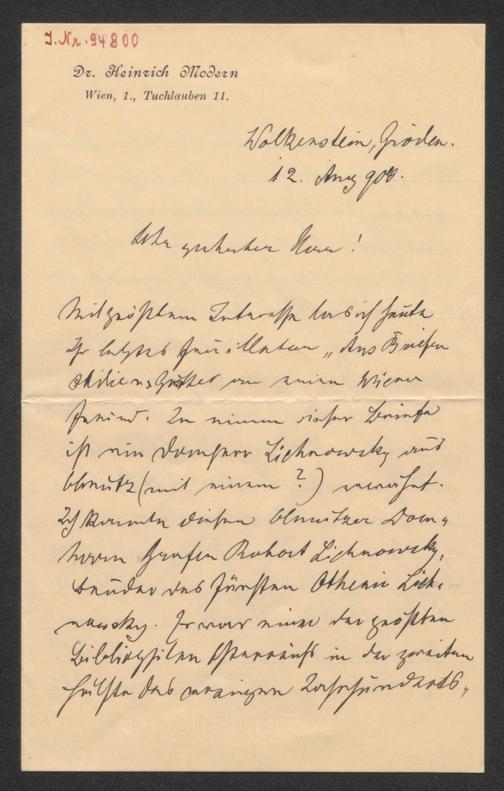 J.Nr. 94800
Dr. Heinrich Modern
Wien, 1., Tuchlauben 11.
Wolkenstein, Gröden.
12. Aug 908.
Sehr geehrter Herr!
Mit größtem Interesse las ich heute
Ihr letztes Feuilleton „Aus Briefen
an einen Wiener
Freund. In einem dieser Briefe
ist ein Domherr Lichnowsky aus
Olmütz (mit einem ?) erwähnt.
Ich kannte diesen Olmützer Dom-
herrn Grafen Robert Lichnowsky,
Bruder des Fürsten Othenio Lich-
nowsky. Er war einer der größten
Bibliophilen Österreichs in der zweiten
Hälfte des vorigen Jahrhunderts,